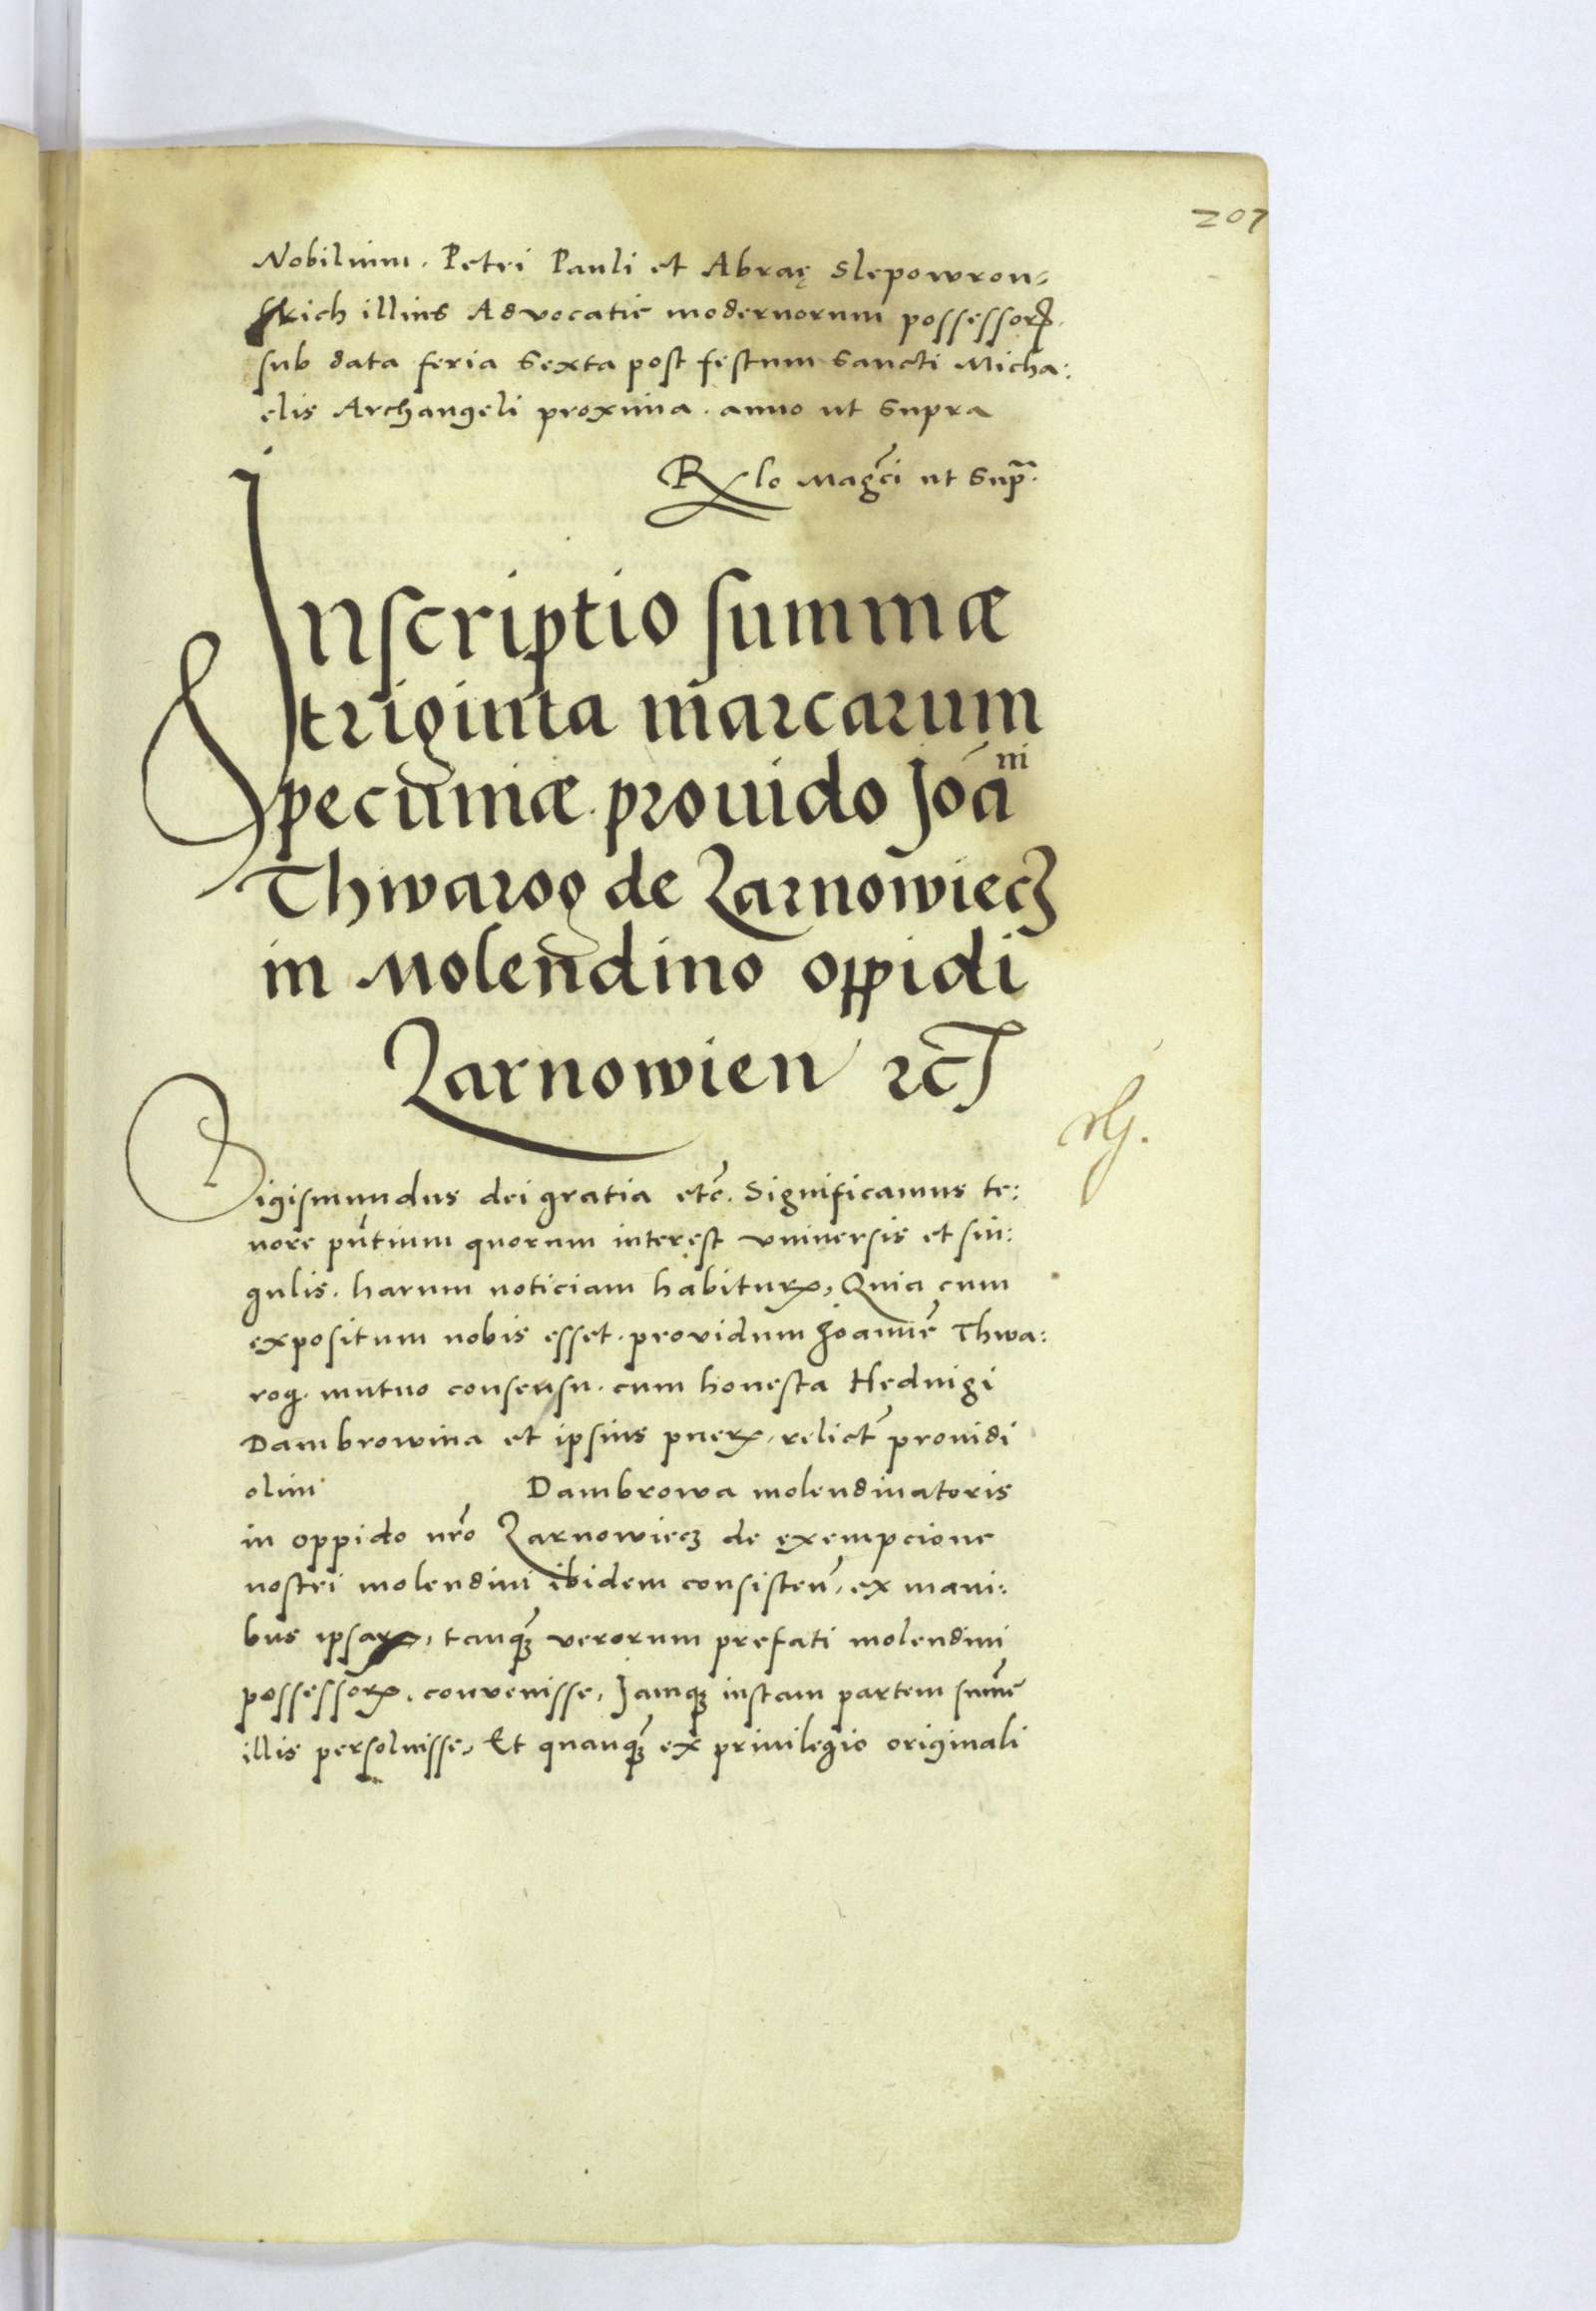 207
Nobilium. Petri Pauli et Abraę Slepowron,
skich illius Advocatie modernorum possessorꝝ.
sub data feria Sexta post festum Sancti Micha:
elis Archangeli proxima. anno ut Supra
Rlo Magci ut Supra.
Inscriptio summæ
triginta marcarum
pecuniæ. prouido Joāni
Thwarog de Zarnowiecz
in Molendino oppidi
Zarnowien ⁊c̄
Sigismundus dei gratia etc̄. Significamus te:
nore pn̄tium quorum interest vniuersis et sin:
gulis. harum noticiam habiturꝝ, Quia cum
expositum nobis esset. providum Joannē Thwa:
rog. mutuo consensu. cum honesta Heduigi
Dambrowina et ipsius puerꝝ, relictē prouidi
olim Dambrowa molendinatoris
in oppido nr̄o Zarnowiecz de exempcione
nostri molendini ibidem consisten̄, ex mani:
bus ipsaꝝ, tanqꝫ verorum prefati molendini
possessorꝝ, convenisse, Jamqꝫ iustam partem sum̄e
illis persoluisse, Et quanqꝫ ex priuilegio originali